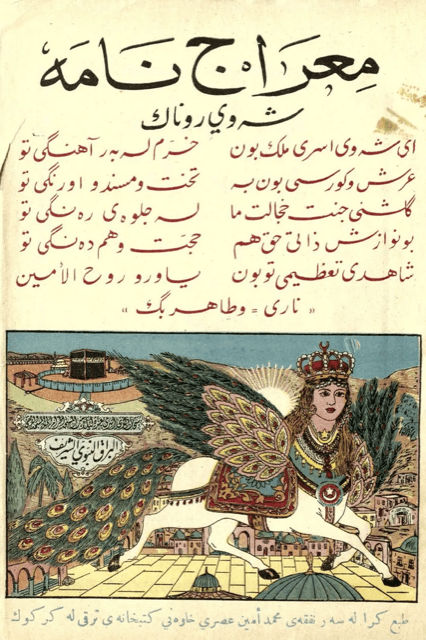 مِعرَاج نَامَه
شه‌وي روناك
ای شه‌وی اسری ملك بون خرم له به‌ر آهنگی تو
عرش و كورسی بون به تخت ومسند و اورنگی تو
گلشنی جنت خجالت ما له جلوه‌ی ره‌نگی تو
بو نوازش ذاتی حق هم حجت و هم ده‌نگی تو
شاهدی تعظیمی تو بون یاورو روح الأمین
« ناری = و طاهر بگ »
البراق النبوي الشريف
طبع كرا له سه‌ر نفقه‌ی محمد أمین عصري خاوه‌نی كتبخانه‌ی ترقی له كركوك